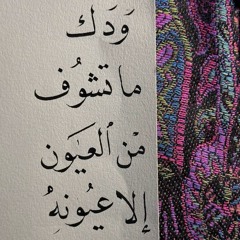 وَدَك
ما تشُوف
مْن ٱلعيٰون
إلا عيُونهُ